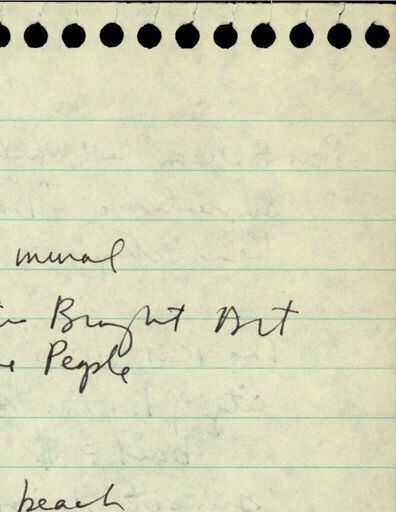 mural
Brought Art
People
beach